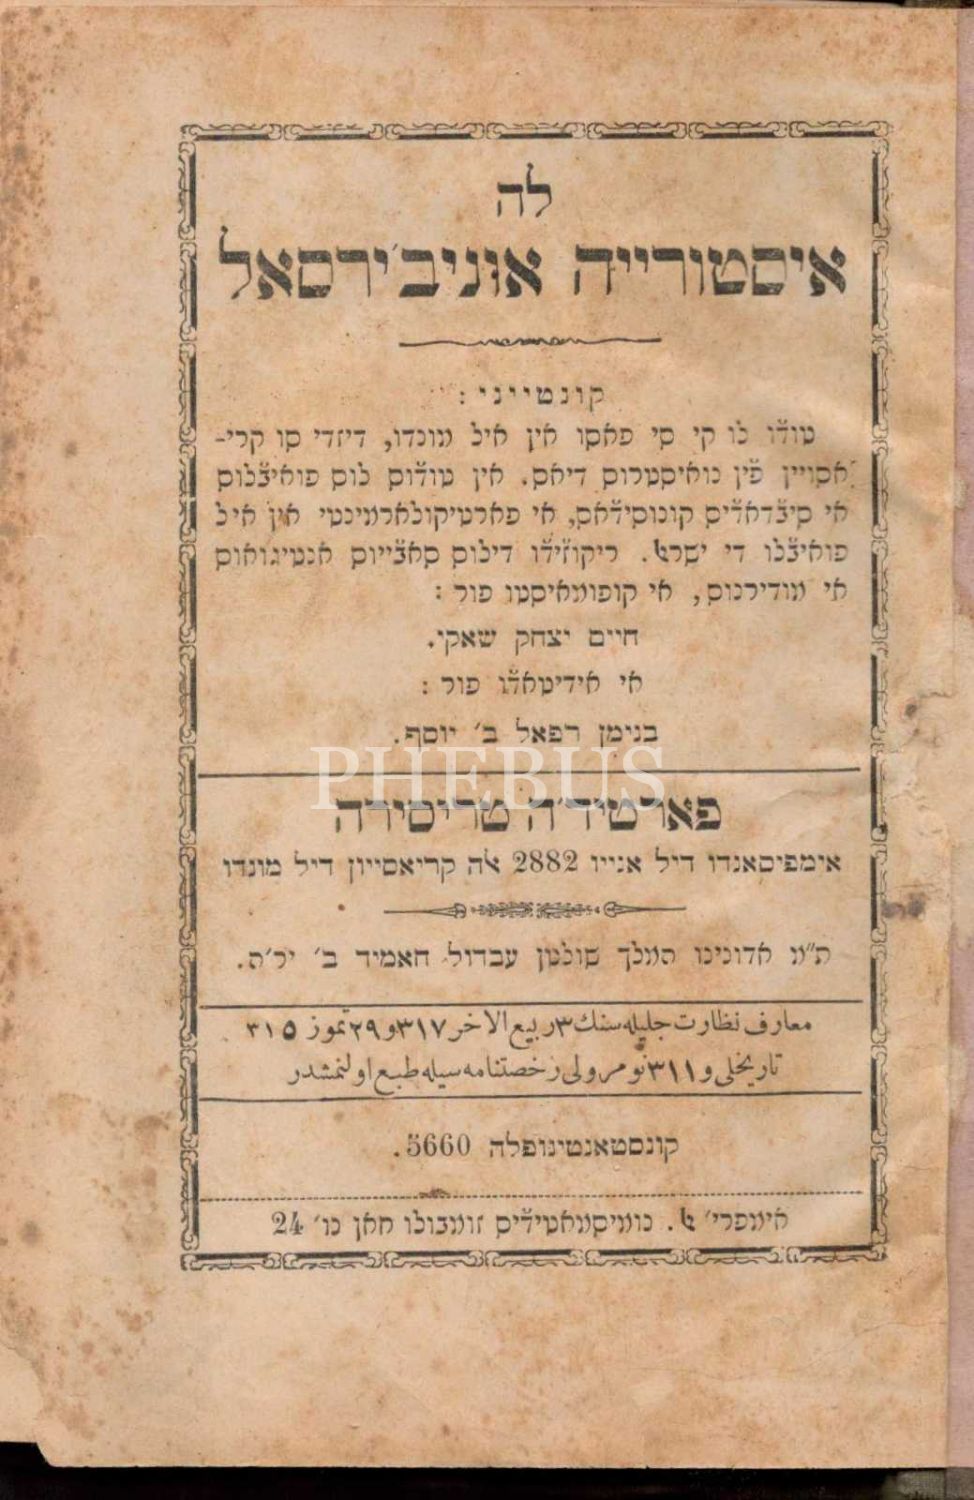 לה
איסטורייה אוניב׳ירסאל
קונטייני :
טודו לו קי סי פאסו אין איל מונדו, דיזדי סו קרי-
אסיין פ֘ין נואיסטרוס דיאס. אין טודוס לוס פואיב֘לוס
אי סיב֘דאדיס קונוסידאס, אי פארטיקולארמינטי אין איל
פואיב֘לו די ישרﭏ. ריקוז֘ידו דילוס סאב֘ייוס אנטיגואוס
אי מודירנוס, אי קופומאיסטו פור :
חיים יצחק שאקי.
אי אידיטאדו פור :
בנימן רפאל ב׳ יוסף.
PHEBUS
פארטיד׳ה טריסירה
אימפיסאנדו דיל אנייו 2882 ﭏה קריאסייון דיל מונדו
ת״מ אדונינו המלך שולטן עבדול חאמיד ב׳ יר׳ה.
معارف نظارت جليله سنك ٣ ربيع الاخر ٣١٧ و ٢٩ تموز ٣١٥
تاريخلى و ٣١١ نومرولى رخصتنامه سيله طبع اولنمشدر
קונסטאנטינופלה 5660.
אימפרי׳ ﭏ. נומיסמאטידיס זומבולו חאן נו׳ 24